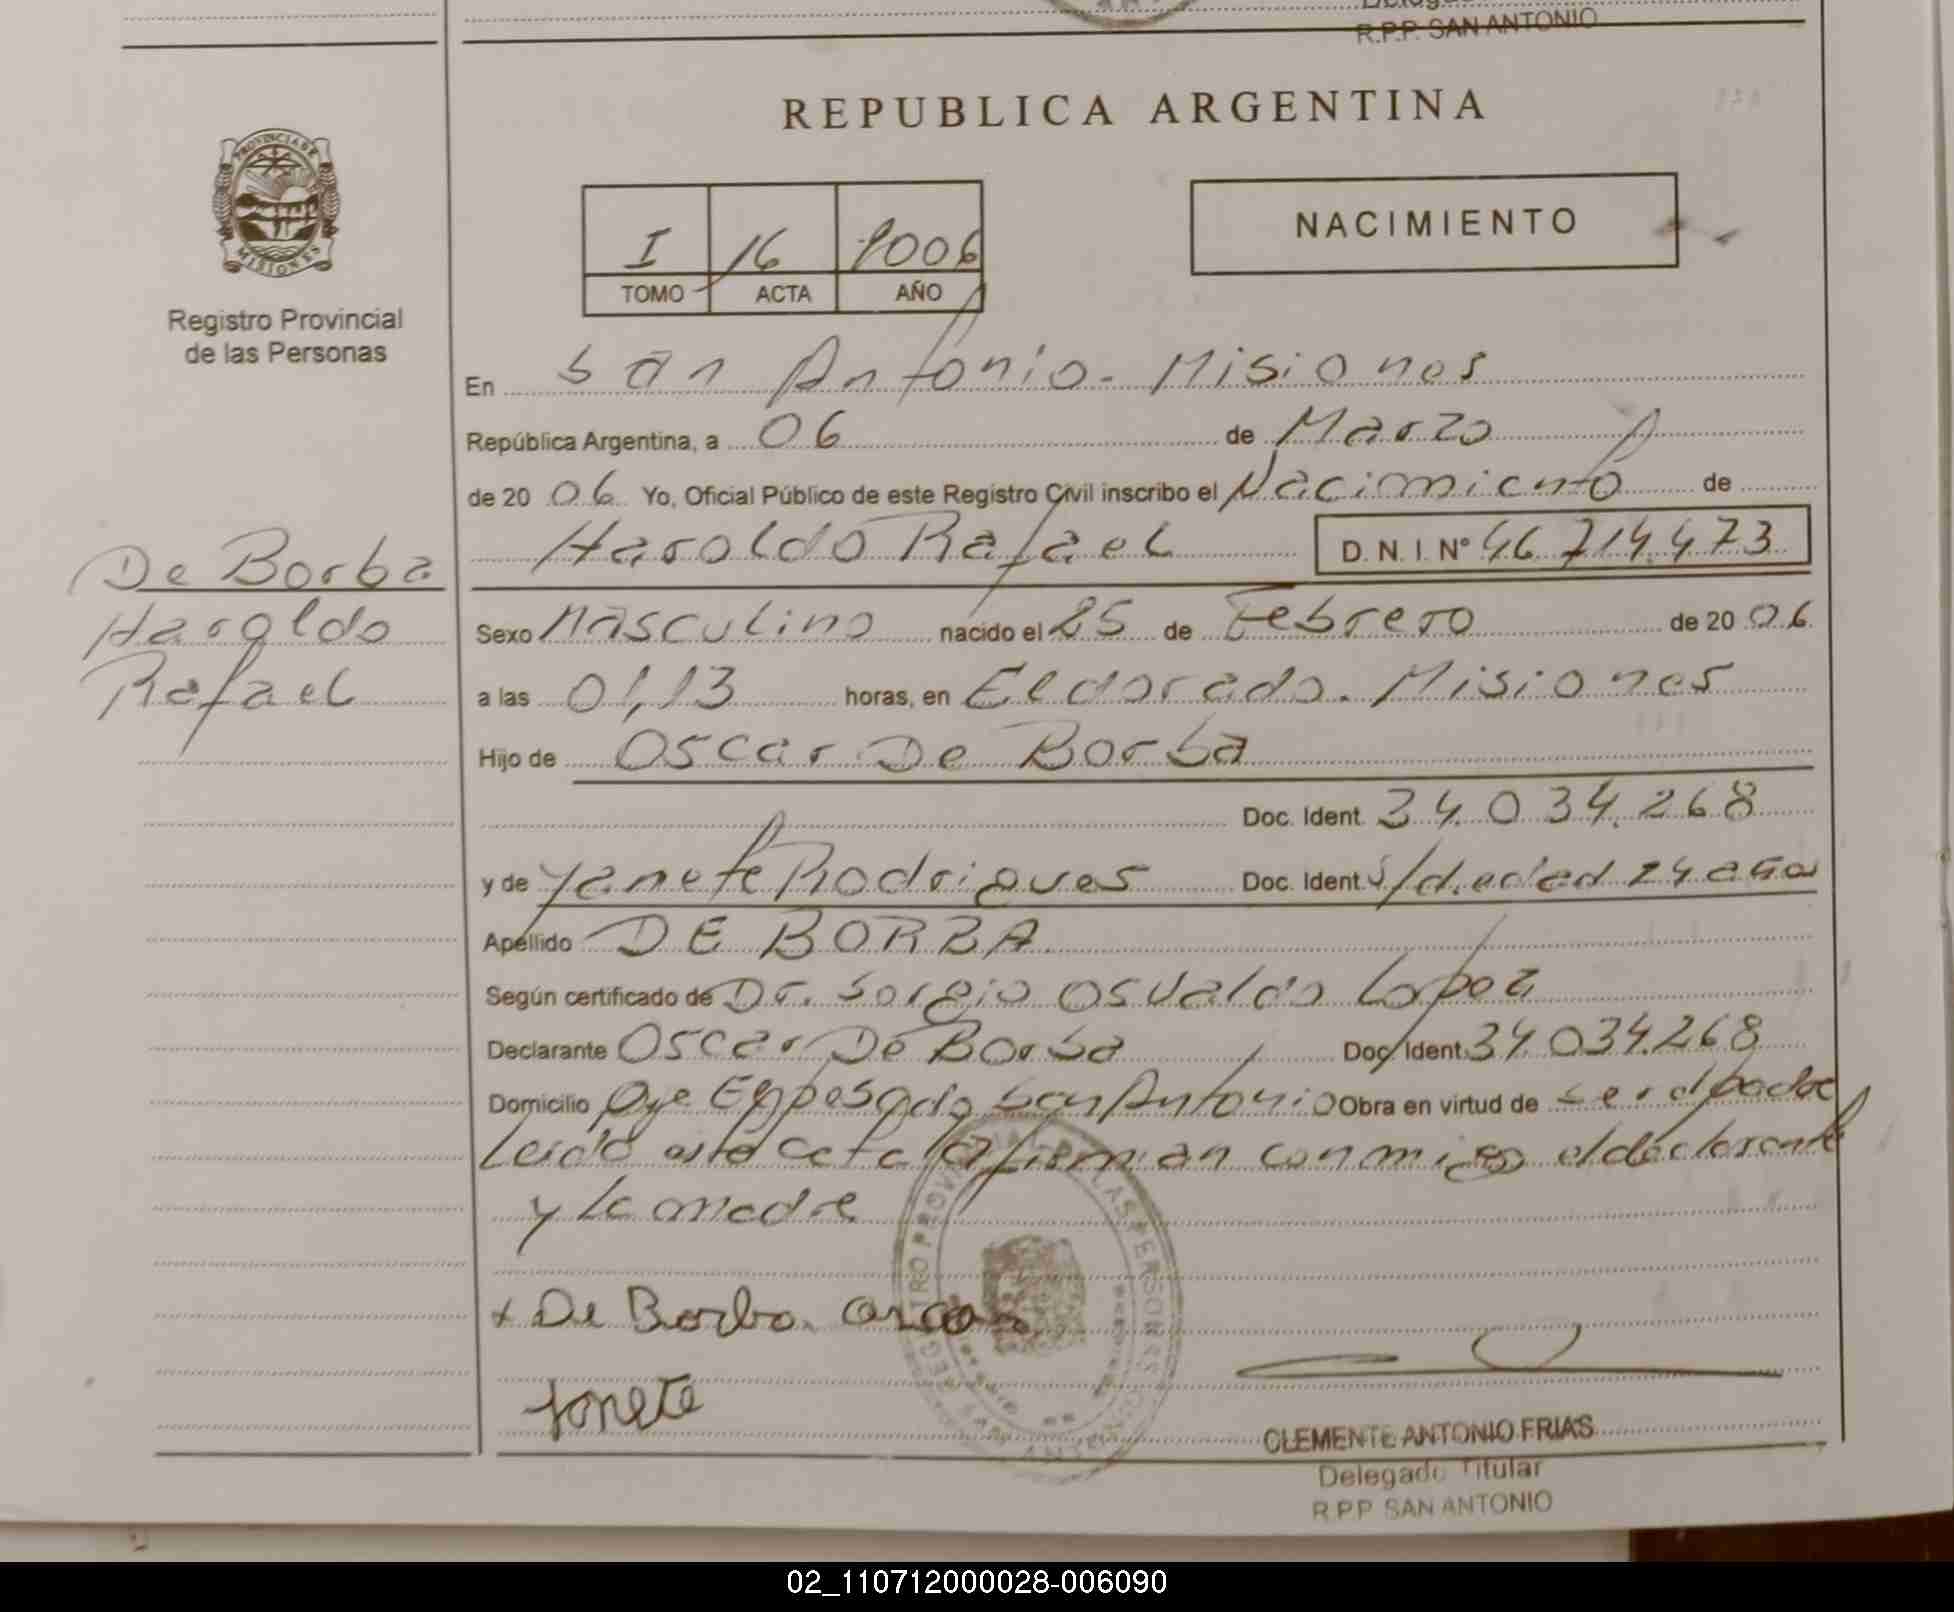 R.P.P. SAN ANTONIO
REPUBLICA ARGENTINA
PROVINCIA DE
MISIONES
Registro Provincial
de las Personas
NACIMIENTO
I 16 2006
TOMO ACTA AÑO
En San Antonio - Misiones
República Argentina, a 06 de Marzo
de 20 06 Yo, Oficial Público de este Registro Civil inscribo el Nacimiento de
Haroldo Rafael D.N.I. Nº 46.714.473
De Borba
Haroldo
Rafael
Sexo Masculino nacido el 25 de Febrero de 20 06
a las 01,13 horas, en Eldorado - Misiones
Hijo de Oscar De Borba
Doc. Ident. 34.034.268
y de Yanete Rodrigues Doc. Ident. S/d. edad 24 años
Apellido DE BORBA
Según certificado de Dr. Sergio Osvaldo Lopez
Declarante Oscar De Borba Doc. Ident. 34.034.268
Domicilio San Antonio Obra en virtud de ser el padre
Leida esta acta la firman conmigo el declarante
y la madre
x De Borba Oscar
Jonete
CLEMENTE ANTONIO FRIAS
Delegado Titular
R.P.P. SAN ANTONIO
02_110712000028-006090